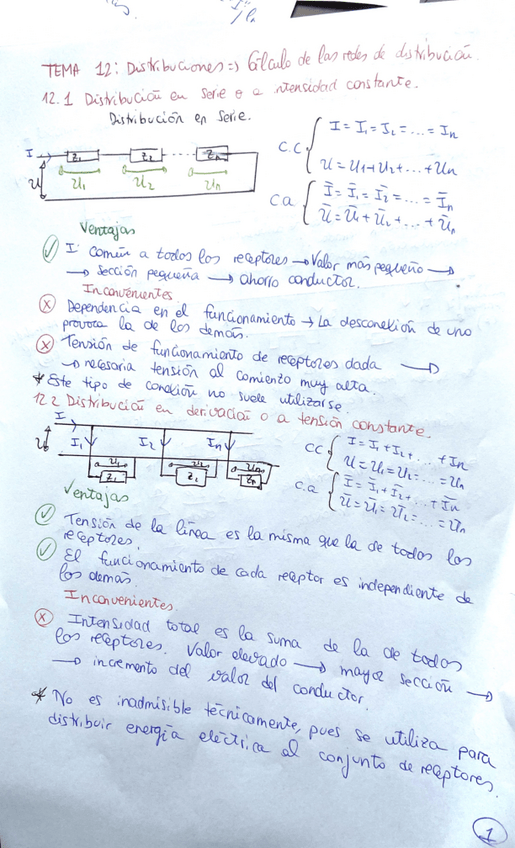 TEMA 12: Distribuciones => Cálculo de las redes de distribución.
12.1 Distribución en serie o a intensidad constante.
Distribución en serie.
I
U
Z1 Z2 ... Zn
U1 U2 Un
C.C { I = I1 = I2 = ... = In
U = U1 + U2 + ... + Un
Ca { Ī = Ī1 = Ī2 = ... = Īn
Ū = Ū1 + Ū2 + ... + Ūn
Ventajas
✓ I: común a todos los receptores → Valor más pequeño →
→ sección pequeña → ahorro conductor.
Inconvenientes
x Dependencia en el funcionamiento → La desconexión de uno
provoca la de los demás.
x Tensión de funcionamiento de receptores dada →
→ necesaria tensión al comienzo muy alta.
* Este tipo de conexión no suele utilizarse.
12.2 Distribución en derivación o a tensión constante.
I
U
I1 I2 In
U1 U2 Un
Z1 Z2 Zn
CC { I = I1 + I2 + ... + In
U = U1 = U2 = ... = Un
C.a { Ī = Ī1 + Ī2 + ... + Īn
Ū = Ū1 = Ū2 = ... = Ūn
Ventajas
✓ Tensión de la línea es la misma que la de todos los
receptores.
✓ El funcionamiento de cada receptor es independiente de
los demás.
Inconvenientes
x Intensidad total es la suma de la de todos
los receptores. Valor elevado → mayor sección →
→ incremento del valor del conductor.
* No es inadmisible técnicamente, pues se utiliza para
distribuir energía eléctrica al conjunto de receptores.
1